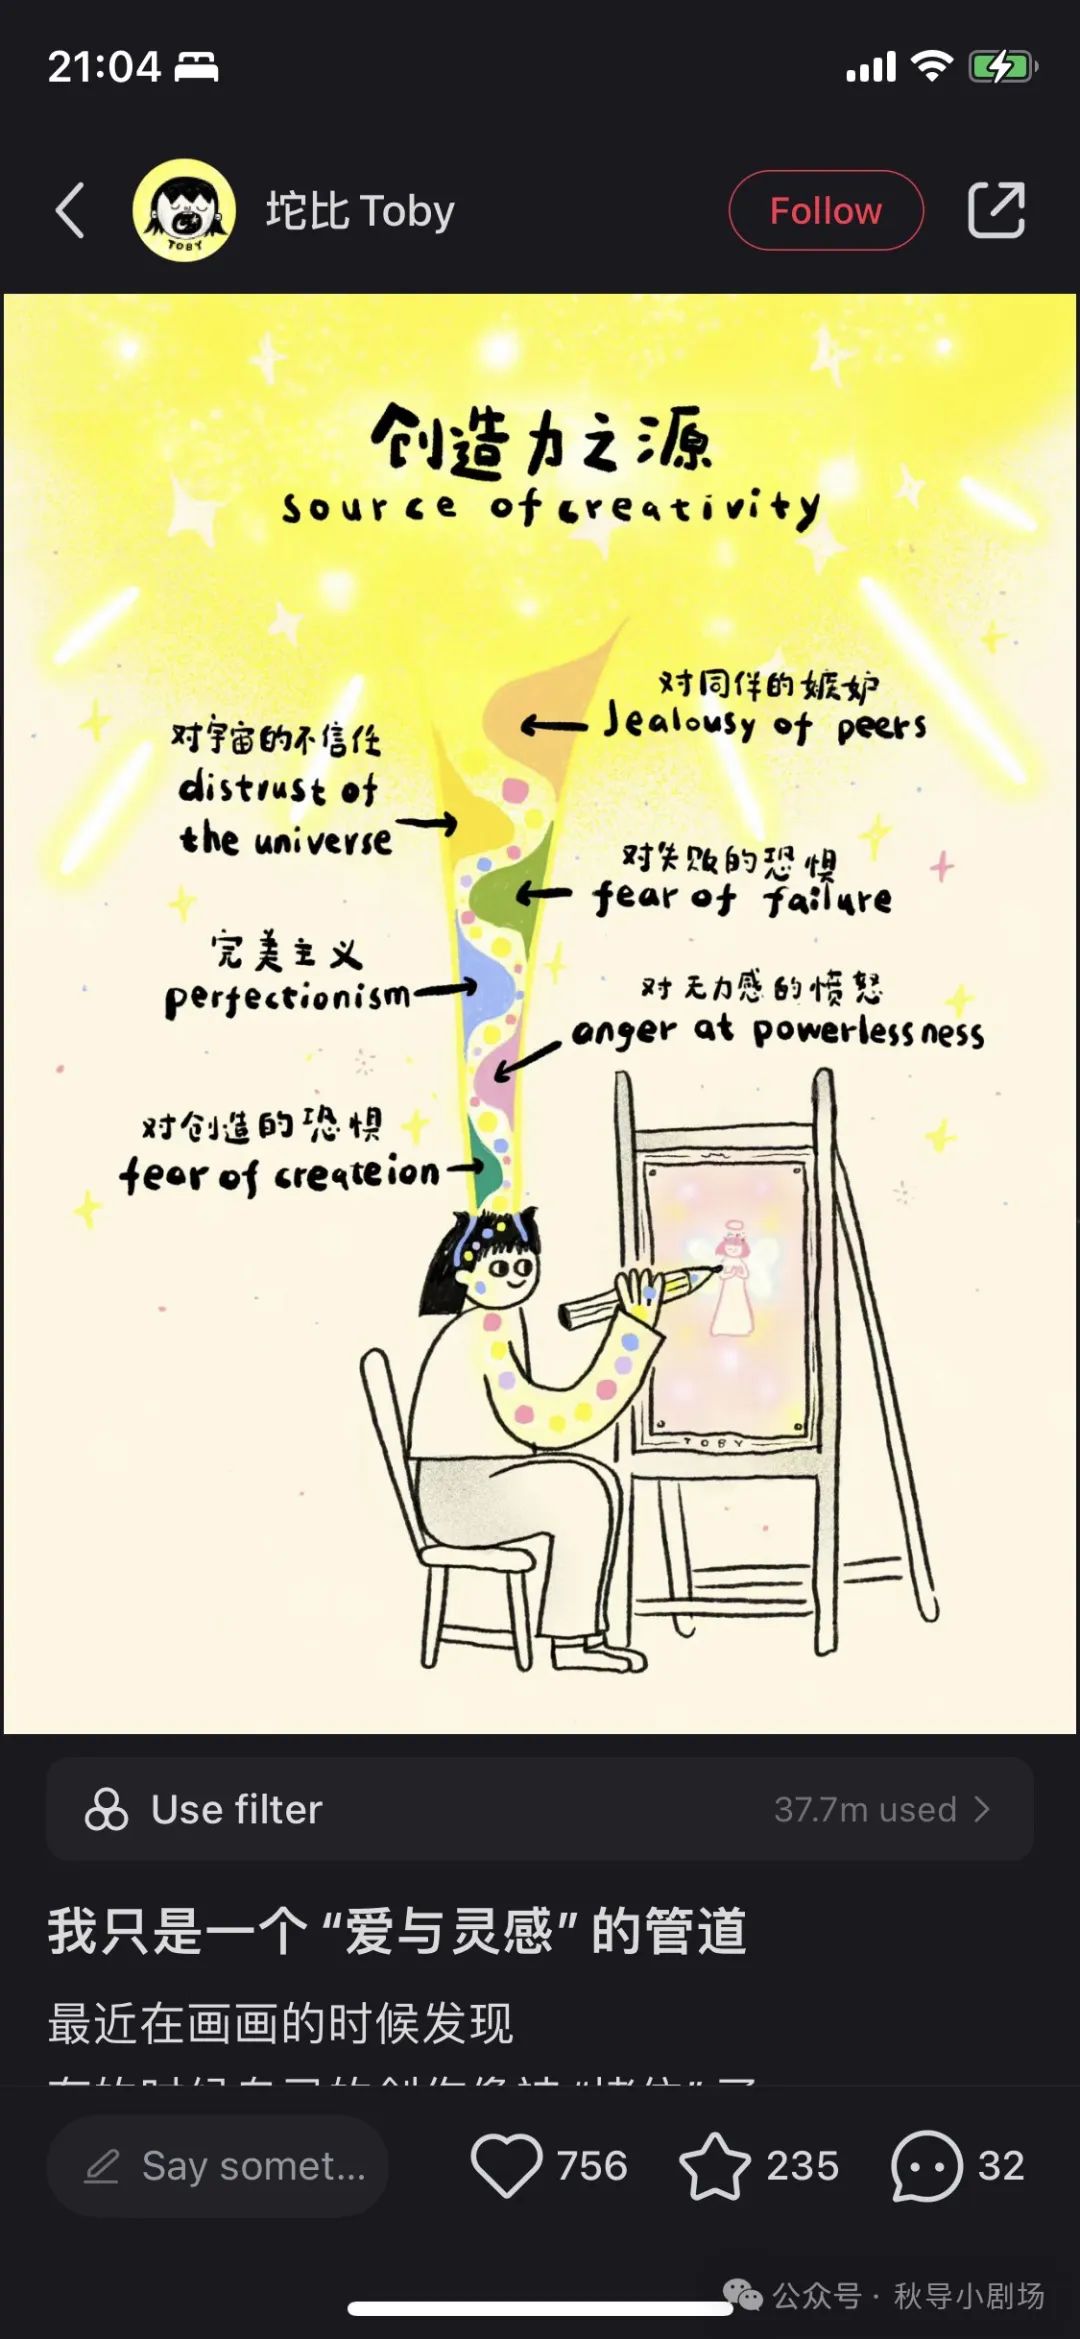 21:04
TOBY
坨比 Toby
Follow
创造力之源
source of creativity
对同伴的嫉妒
Jealousy of peers
对宇宙的不信任
distrust of
the universe
对失败的恐惧
fear of failure
完美主义
perfectionism
对无力感的愤怒
anger at powerlessness
对创造的恐惧
fear of createion
TOBY
Use filter
37.7m used
我只是一个“爱与灵感”的管道
最近在画画的时候发现
有的时候自己的创作像被“堵住”了
Say somet...
756
235
32
公众号 · 秋导小剧场